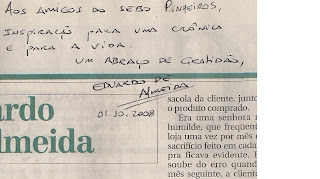 AOS AMIGOS DO SEBO PINHEIROS,
INSPIRAÇÃO PARA UMA CRÔNICA
E PARA A VIDA.
UM ABRAÇO DE GRATIDÃO,
EDUARDO DE
ALMEIDA
01.10.2008
ardo
lmeida
sacola da cliente, junto
o produto comprado.
Era uma senhora m
humilde, que freqüent
loja uma vez por mês
sacrifício feito em cada
pra ficava evidente. E
soube do erro quando
mês seguinte, a client